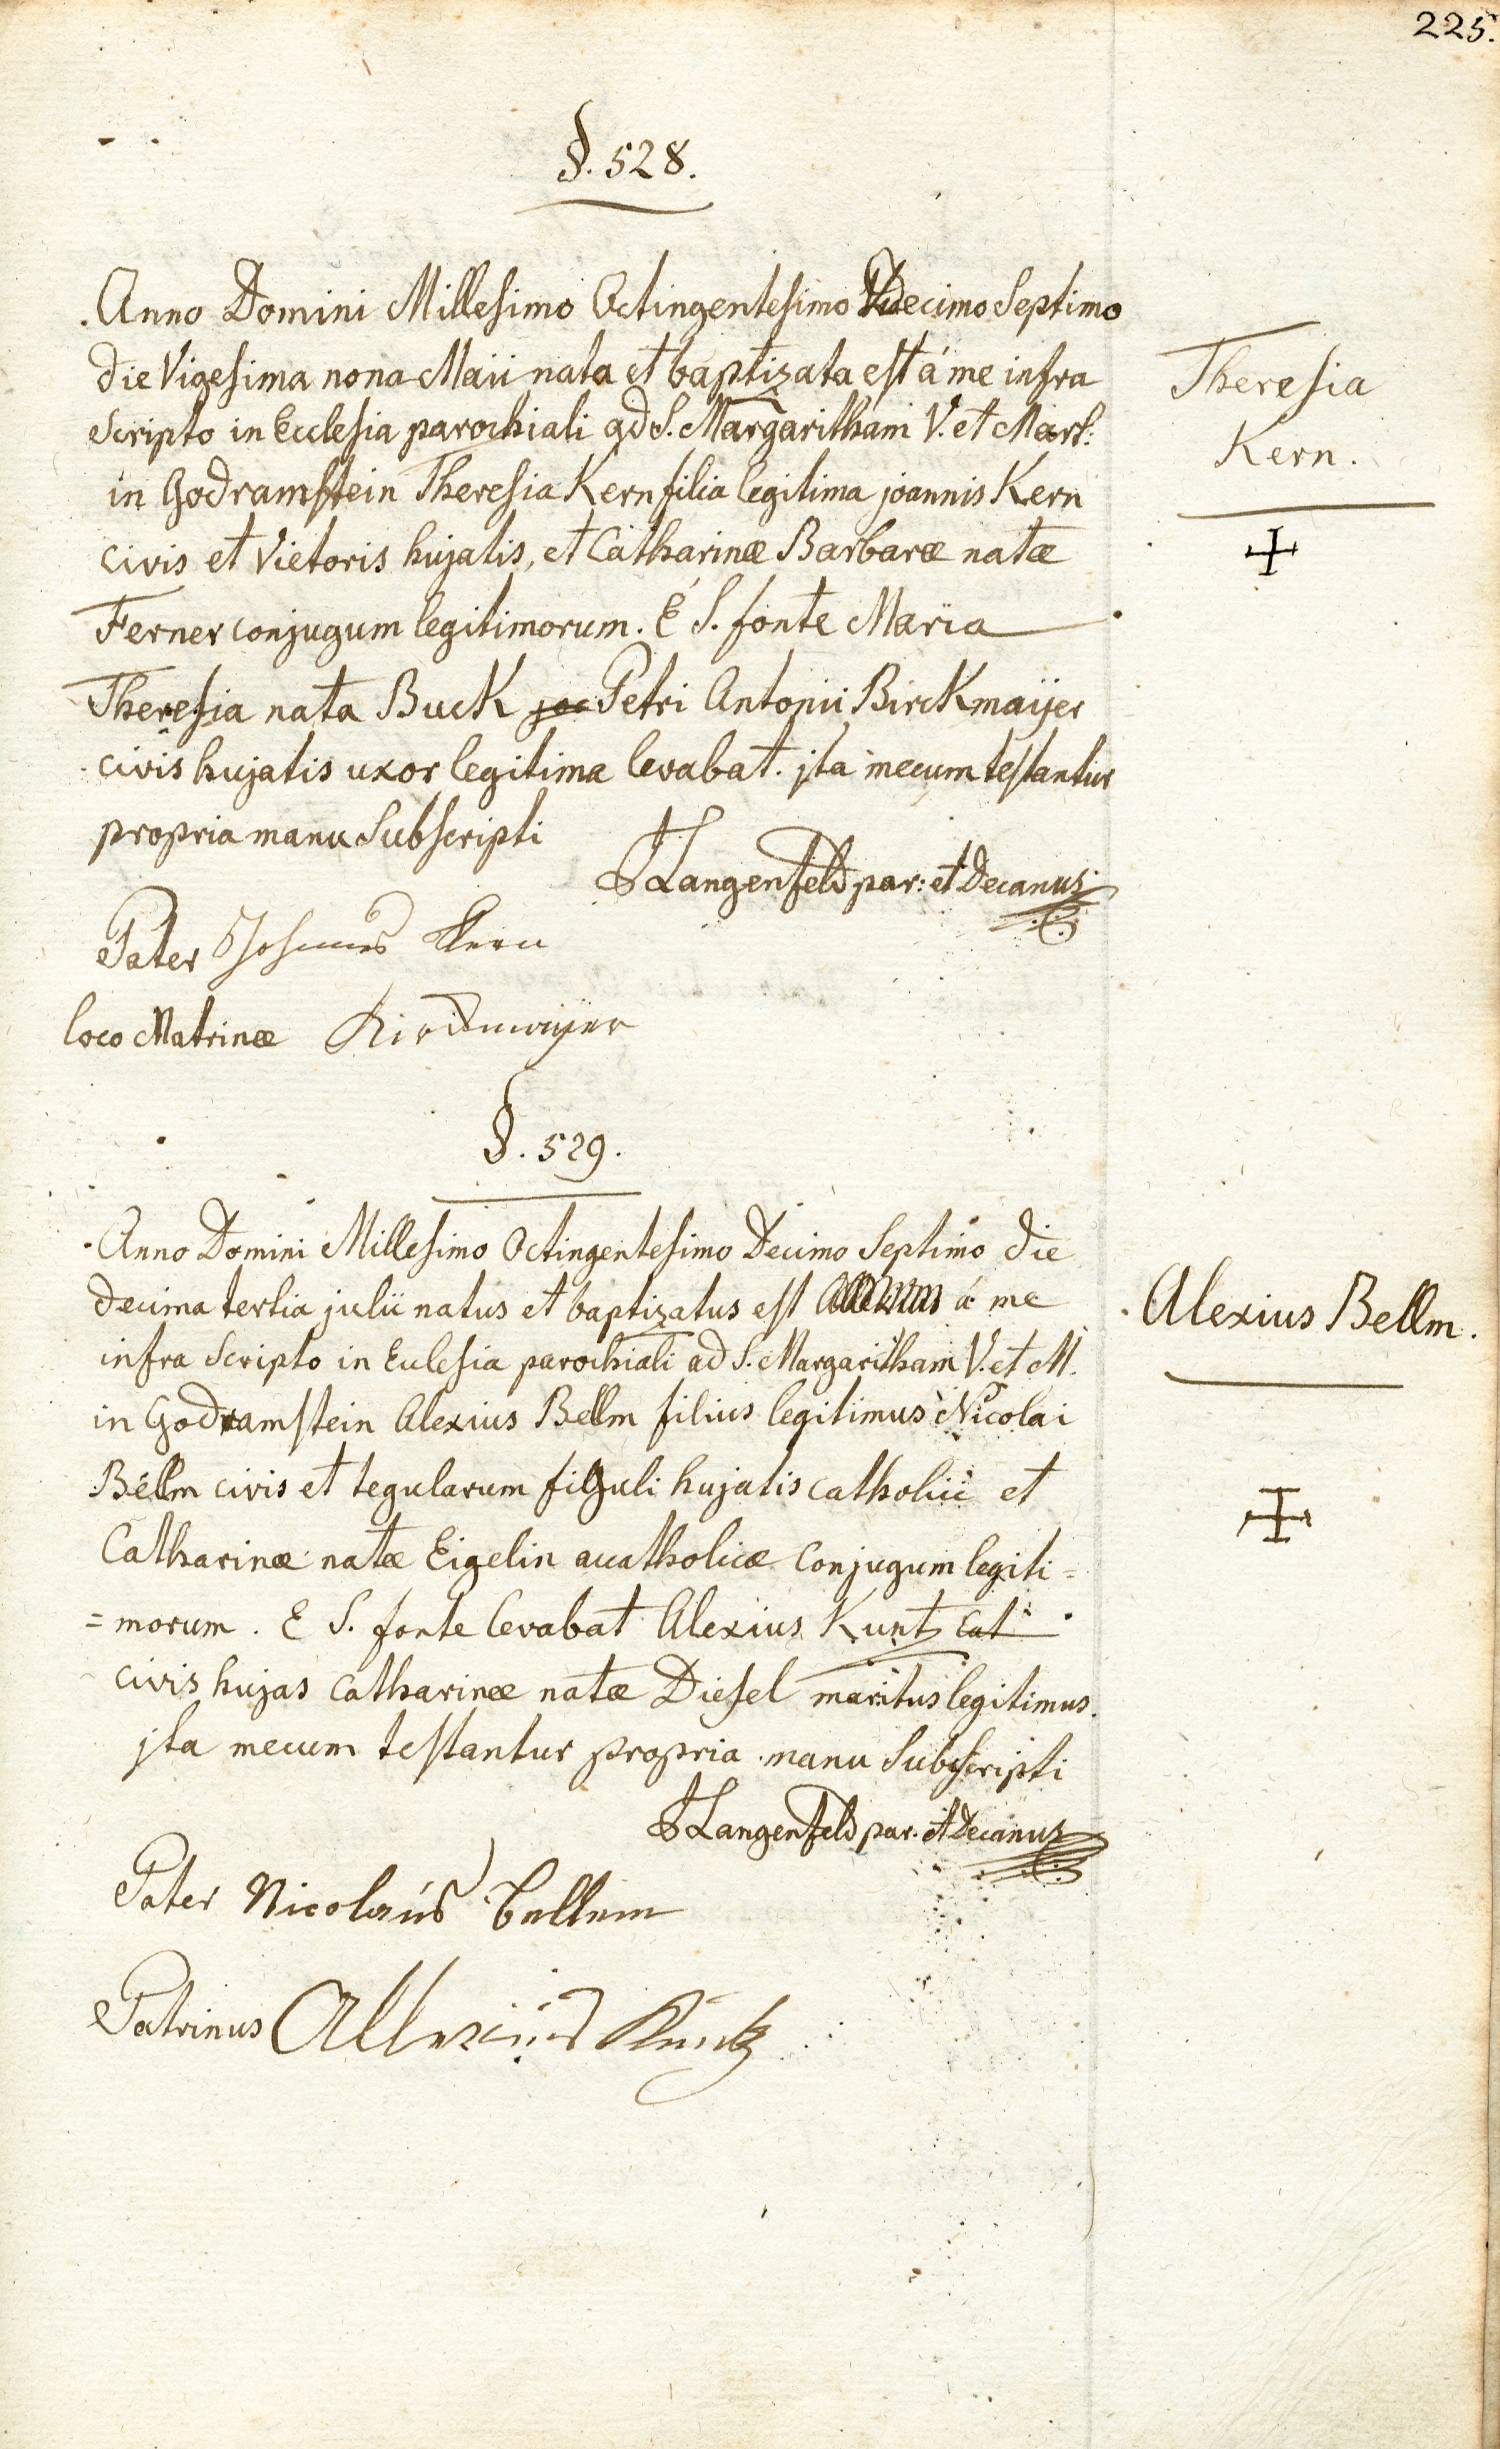 225.
§. 528.
Anno Domini Millesimo Octingentesimo Decimo Septimo
die Vigesima nona Maii nata et baptizata est á me infra
Scripto in Ecclesia parochiali ad S. Margaritham V. et Mart:
in Godramstein Theresia Kern filia legitima joannis Kern
civis et Vietoris hujatis, et Catharinæ Barbaræ natæ
Ferner conjugum legitimorum. É S. fonte Maria
Theresia nata Buck joa Petri Antonii Birckmaijer
civis hujatis uxor legitima levabat. jta mecum testantur
propria manu Subscripti
Langenfeld par: et Decanus
Pater Johannes Kern
loco Matrinæ Birckmaijer
Theresia
Kern.
§. 529.
Anno Domini Millesimo Octingentesimo Decimo Septimo die
decima tertia julii natus et baptizatus est á me
infra Scripto in Eclesia parochiali ad S. Margaritham V. et M.
in Godramstein Alexius Bellm filius legitimus Nicolai
Bellm civis et tegularum figuli hujatis catholici et
Catharinæ natæ Eigelin acatholicæ Conjugum legiti=
=morum. E S. fonte levabat Alexius Kuntz Cat
civis hujas Catharinæ natæ Diesel maritus legitimus.
jta mecum testantur propria manu Subscripti
Langenfeld par. et Decanus
Pater Nicolaús Bellem
Patrinus Allexius Kuntz
Alexius Bellm.